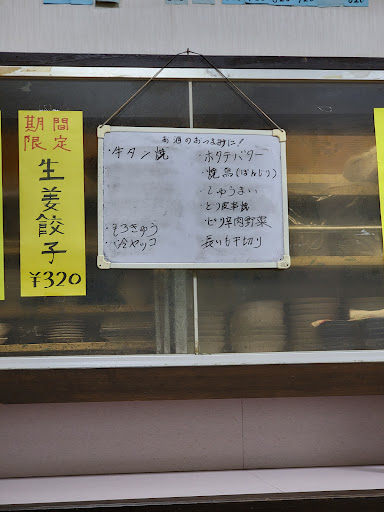 期間
限定
生姜餃子
¥320
お酒のおつまみに!
・牛タン焼
・もろきゅう
・冷ヤッコ
・ホタテバター
・焼鳥(ぼんじり)
・しゅうまい
・とり皮串焼
・ピリ辛肉野菜
・長いも千切り